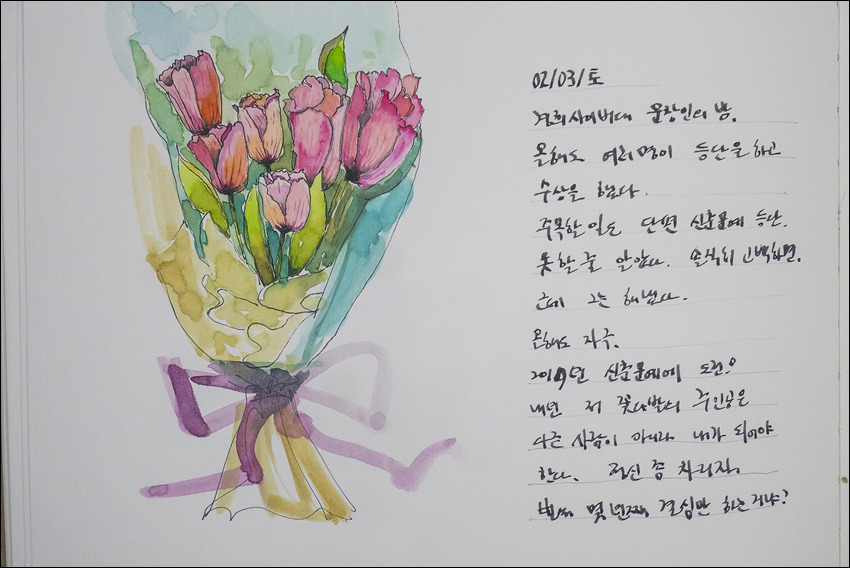 02/03/토
경희사이버대 문창인의 밤.
올해도 여러명이 등단을 하고
수상을 했다.
주목할 일은 단편 신춘문예 등단.
못할 줄 알았다. 솔직히 고백하면.
근데 그는 해냈다.
올해도 자극.
2019년 신춘문예에 도전
내년 저 꽃다발의 주인공은
다른 사람이 아니라 내가 되어야
한다. 정신 좀 차리자.
벌써 몇 년째 결심만 하는거냐?